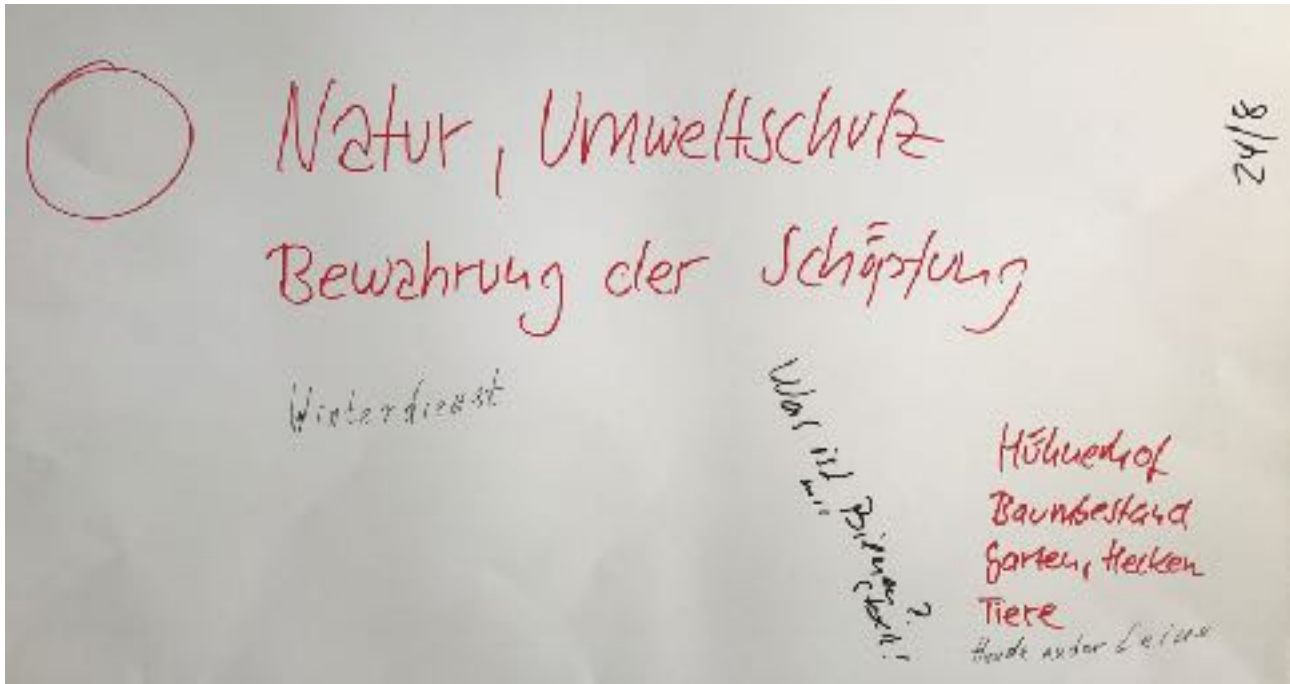 Natur, Umweltschutz
Bewahrung der Schöpfung
24/8
Winterdienst
Was ist
mit Bienen?
Hühnerhof
Baumbestand
Garten, Hecken
Tiere
Hunde an der Leine